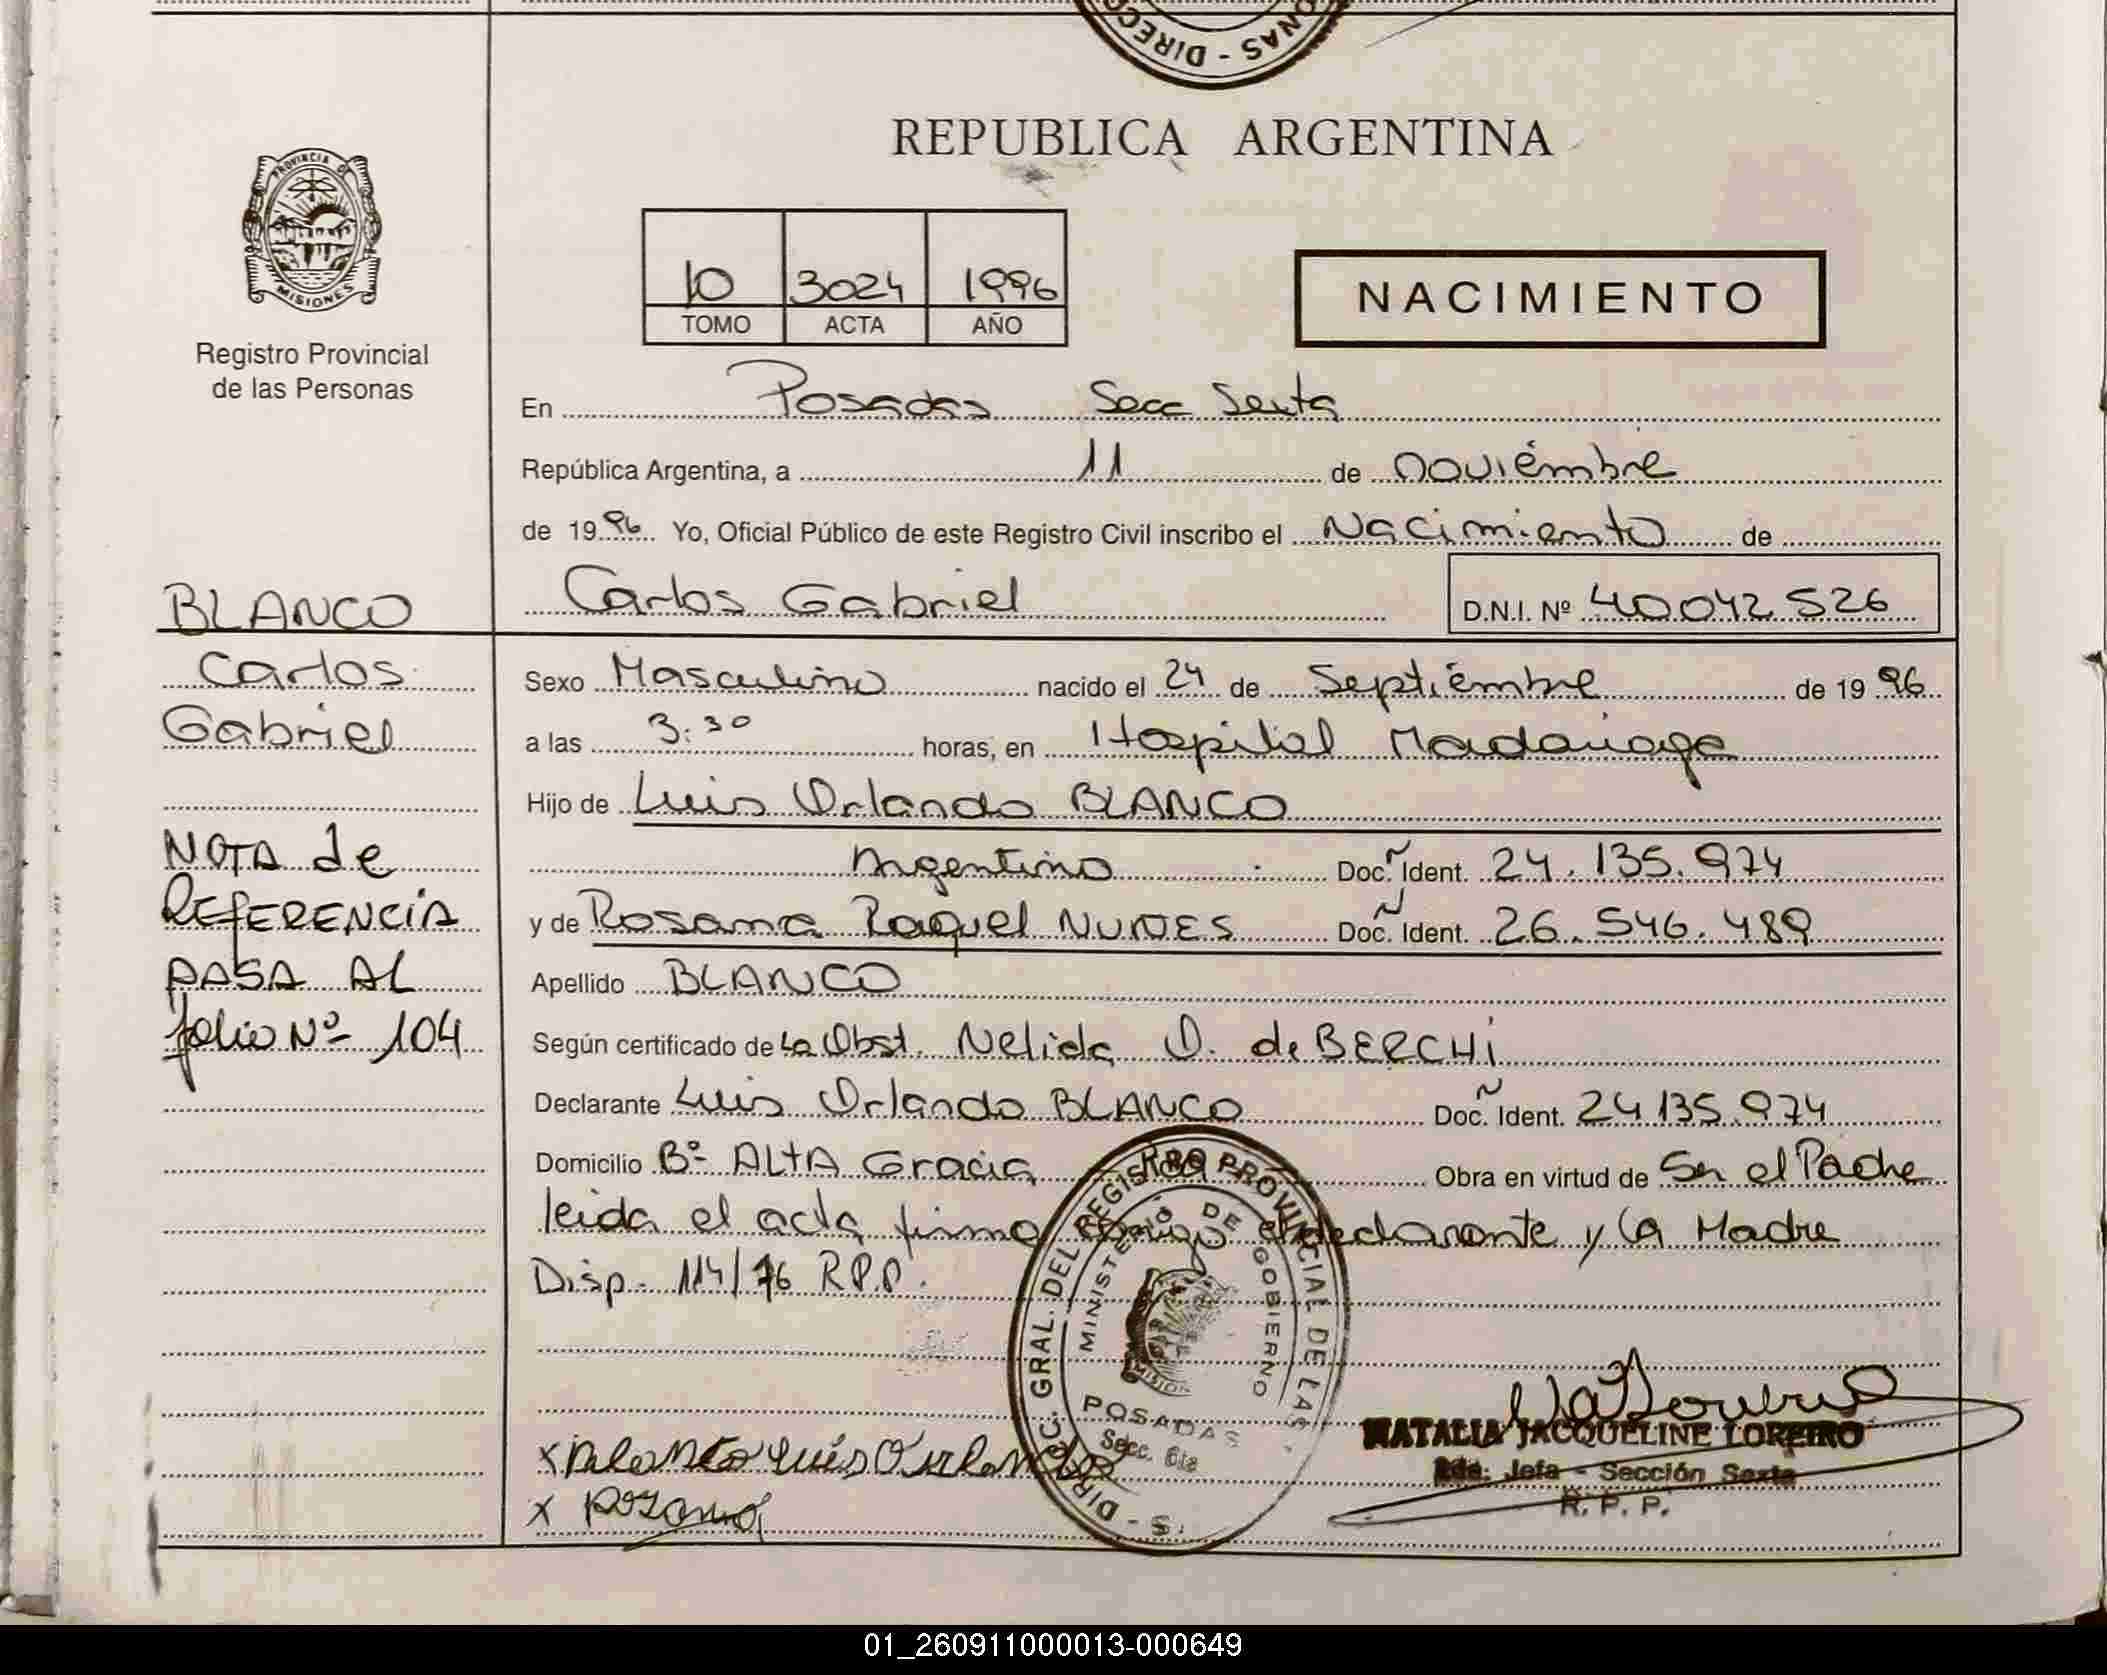 REPUBLICA ARGENTINA
PROVINCIA DE
MISIONES
Registro Provincial
de las Personas
10 3024 1996
TOMO ACTA AÑO
NACIMIENTO
En Posadas Secc Sexta
República Argentina, a 11 de noviembre
de 1996 Yo, Oficial Público de este Registro Civil inscribo el Nacimiento de
Carlos Gabriel D.N.I. Nº 40042526
BLANCO
Carlos
Gabriel
NOTA de
REfERENCiA
PASA AL
folio Nº 104
Sexo Masculino nacido el 24 de Septiembre de 1996
a las 3:30 horas, en Hospital Madariaga
Hijo de Luis Orlando BLANCO
Argentino Doc. Ident. 24.135.974
y de Rosana Raquel NUNES Doc. Ident. 26.546.489
Apellido BLANCO
Según certificado de La Obst. Nelida O. de BERCHi
Declarante Luis Orlando BLANCO Doc. Ident. 24.135.974
Domicilio Bº ALTA Gracia Obra en virtud de Ser el Padre
leida el acta firma conmigo el declarante y la Madre
Disp. 114/76 R.P.P.
DIRECC. GRAL. DEL REGISTRO PROVINCIAL DE LAS
MINISTERIO DE GOBIERNO
POSADAS
Secc. 6ta
NATALIA JACQUELINE LOREIRO
2da. Jefa - Sección Sexta
R. P. P.
01_260911000013-000649